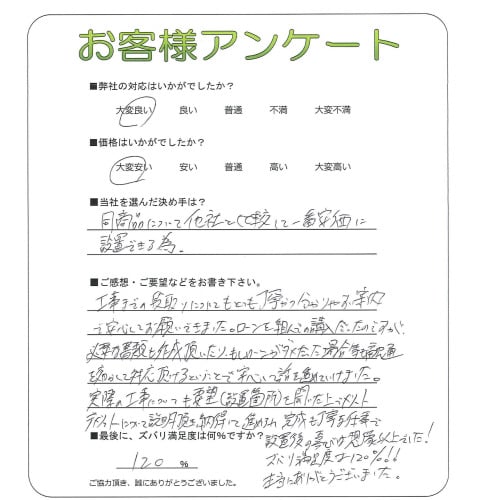 お客様アンケート
■弊社の対応はいかがでしたか？
大変良い 良い 普通 不満 大変不満
■価格はいかがでしたか？
大変安い 安い 普通 高い 大変高い
■当社を選んだ決め手は？
同商品について他社と比較して一番安価に
設置できる為。
■ご感想・ご要望などをお書き下さい。
工事までの段取りについてもとても丁寧かつ分かりやすい案内
で安心してお願いできました。ローンを組んでの購入だったのですが、
必要書類も作成頂いたり、もしローンがダメだった場合も融通
を効かして対応頂けるということで安心して話を進めていけました。
実際の工事についても要望(設置箇所)を聞いた上メリット
デメリットについて説明頂き納得して進められ 完成も丁寧な仕事で
設置後の喜びは想像以上でした！
ズバリ満足度は120%!!!
本当にありがとうございました。
■最後に、ズバリ満足度は何％ですか？
120 %
ご協力頂き、誠にありがとうございました。